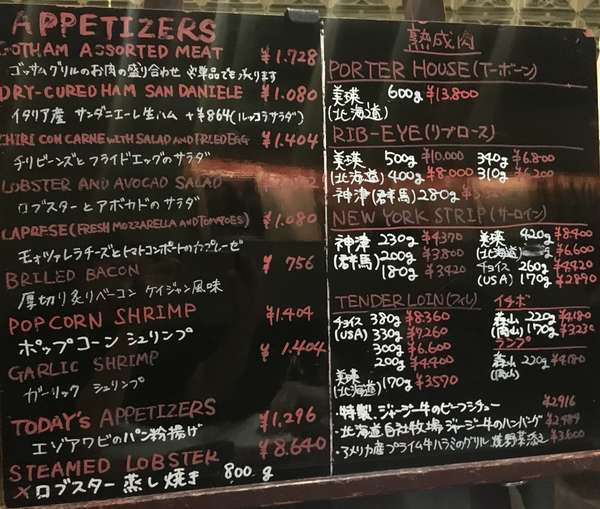 APPETIZERS
GOTHAM ASSORTED MEAT ¥1.728
ゴッサムグリルのお肉の盛り合わせ ※単品でも承ります
DRY-CURED HAM SAN DANIELE ¥1.080
イタリア産 サンダニエーレ生ハム +¥864(ルッコラサラダ)
CHIRI CON CARNE WITH SALAD AND FRIED EGG ¥1.404
チリビーンズとフライドエッグのサラダ
LOBSTER AND AVOCAD SALAD
ロブスターとアボカドのサラダ
CAPRESE (FRESH MOZZARELLA AND TOMATOES) ¥1.080
モッツァレラチーズとトマトコンポートのカプレーゼ
BRILED BACON ¥ 756
厚切り炙りベーコン ケイジャン風味
POPCORN SHRIMP ¥1.404
ポップコーン シュリンプ
GARLIC SHRIMP ¥ 1.404
ガーリック シュリンプ
TODAY'S APPETIZERS ¥1.296
エゾアワビのパン粉揚げ
STEAMED LOBSTER ¥8.640
×ロブスター 蒸し焼き 800g
熟成肉
PORTER HOUSE (Tーボーン)
美瑛 600g ¥13.800
(北海道)
RIB-EYE (リブロース)
美瑛 500g ¥10.000 340g ¥6.800
(北海道) 400g ¥8.000 310g ¥6.200
神津 (群馬) 280g
NEW YORK STRIP (サーロイン)
神津 230g ¥4370
(群馬) 200g ¥3800
180g ¥3420
美瑛 420g ¥8.400
(北海道) ¥6.600
チョイス 260g ¥4.420
(USA) 170g ¥2890
TENDER LOIN (フィレ)
チョイス 380g ¥8.360
(USA) 330g ¥7.260
300g ¥6.600
200g ¥4.400
美瑛
(北海道) 170g ¥3570
イチボ
森山 220g ¥4.180
(岡山) 170g ¥3230
ランプ
森山 220g ¥4.180
(岡山)
・特製ジャージー牛のビーフシチュー ¥2916
・北海道自社牧場ジャージー牛のハンバーグ ¥2.484
・アメリカ産プライム牛ハラミのグリル 焼野菜添え ¥3.600